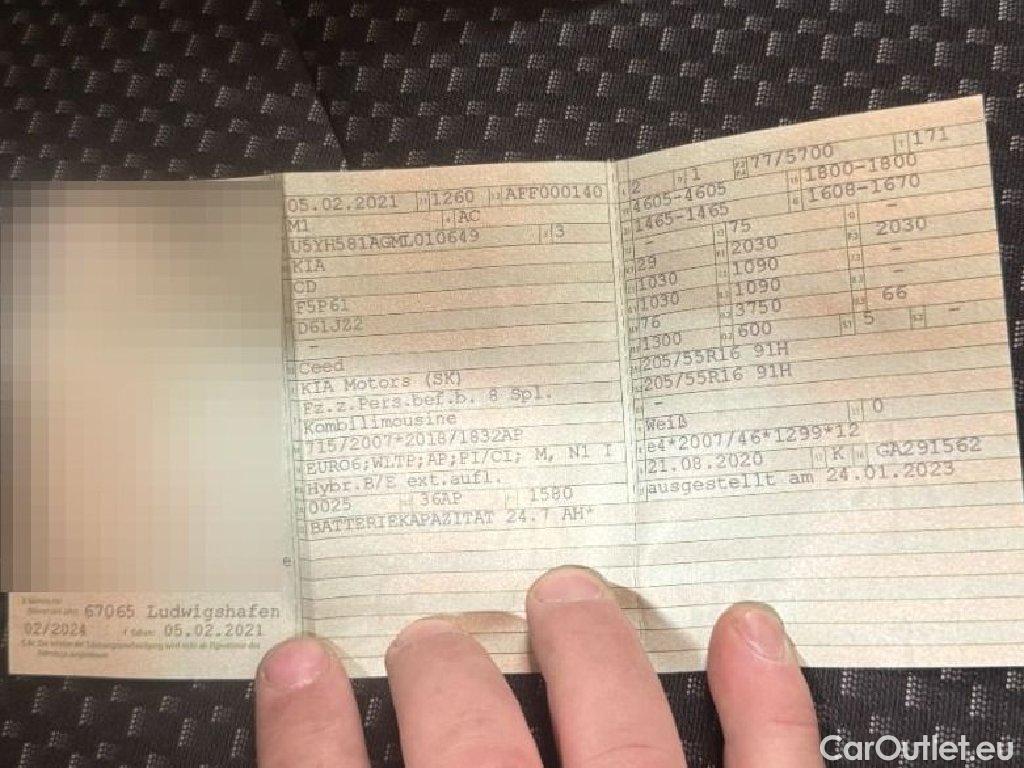 05.02.2021 1260 AFF000140
M1 AC
U5YH581AGML010649 3
KIA
CD
F5P61
D61JZ2
-
Ceed
KIA Motors (SK)
Fz.z.Pers.bef.b. 8 Spl.
Kombilimousine
715/2007*2018/1832AP
EURO6;WLTP;AP;PI/CI; M, N1 I
Hybr.B/E ext.aufl.
0025 36AP 1580
BATTERIEKAPAZITÄT 24.7 AH*
e
67065 Ludwigshafen
02/2024 05.02.2021
2 1 77/5700 171
4605-4605 1800-1800
1465-1465 1608-1670
- 75 -
29 2030 2030
1030 1090 -
1030 1090 -
76 3750 66
1300 600 5 -
205/55R16 91H
205/55R16 91H
-
Weiß 0
e4*2007/46*1299*12
21.08.2020 K GA291562
ausgestellt am 24.01.2023
CarOutlet.eu